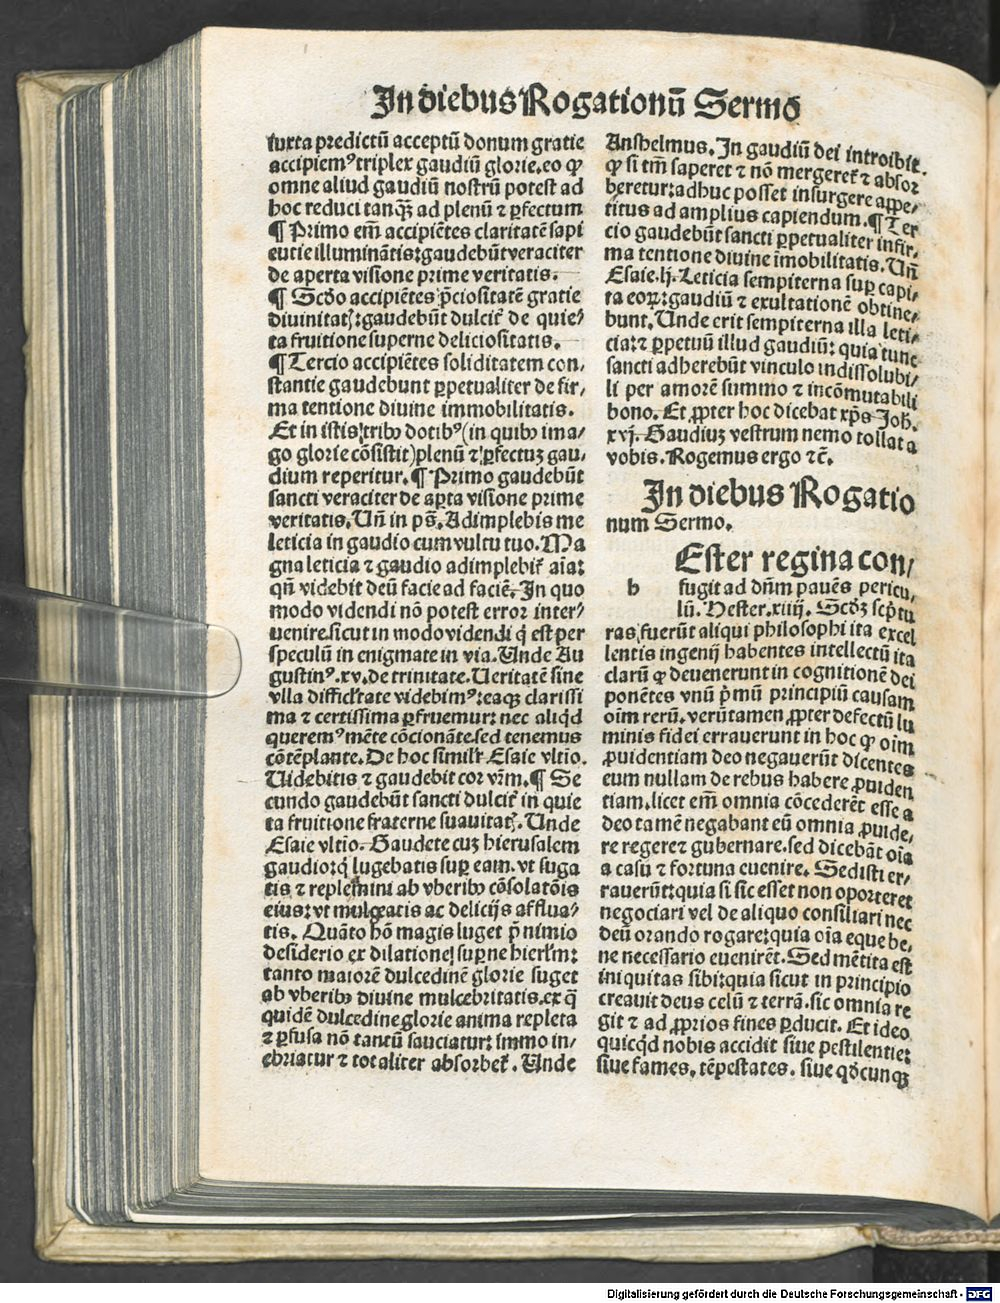 In diebus Rogationū Sermo
iuxta predictū acceptū donum gratie
accipiemꝰ triplex gaudiū glorie. eo ꝙ
omne aliud gaudiū nostrū potest ad
hoc reduci tanqꝫ ad plenū ⁊ ꝑfectum
¶ Primo em̄ accipiētes claritatē sapi
entie illuminātis: gaudebūt veraciter
de aperta visione prime veritatis.
¶ Scd̓o accipiētes p̄ciositatē gratie
diuinitatꝭ: gaudebūt dulcit̓ de quie⸗
ta fruitione superne deliciositatis.
¶ Tercio accipiētes soliditatem con⸗
stantie gaudebunt ꝑpetualiter de fir⸗
ma tentione diuine immobilitatis.
Et in istis tribꝰ dotibꝰ (in quibꝰ ima⸗
go glorie cōsistit) plenū ⁊ ꝑfectuꝫ gau⸗
dium reperitur. ¶ Primo gaudebūt
sancti veraciter de aꝑta visione prime
veritatis. Un̄ in ps̄. Adimplebis me
leticia in gaudio cum vultu tuo. Ma
gna leticia ⁊ gaudio adimplebit̓ aīa:
qn̄ videbit deū facie ad faciē. In quo
modo videndi nō potest error inter⸗
uenire. sicut in modo videndi q̇ est per
speculū in enigmate in via. Unde Au
gustinꝰ. xv. de trinitate. Ueritatē sine
vlla difficl̓tate videbimꝰ: eaqꝫ clarissi
ma ⁊ certissima ꝑfruemur: nec aliq̇d
queremꝰ mēte cōcionāte. sed tenemus
cōtēplante. De hoc simil̓r Esaie vltio.
Uidebitis ⁊ gaudebit cor vr̄m. ¶ Se
cundo gaudebūt sancti dulcit̓ in quie
ta fruitione fraterne suauitatꝭ. Unde
Esaie vltio. Gaudete cuꝫ hierusalem
gaudio: q̇ lugebatis suꝑ eam. vt suga
tis ⁊ replemini ab vberibꝰ cōsolatōis
eius: vt mulgeatis ac delicijs afflua⸗
tis. Quāto hō magis luget p̄ nimio
desiderio ex dilatione suꝑne hierl̓m:
tanto maiorē dulcedinē glorie suget
ab vberibꝰ diuine mulcebritatis. ex q̄
quidē dulcedine glorie anima repleta
⁊ ꝑfusa nō tantū sauciatur: immo in⸗
ebriatur ⁊ totaliter absorbet̓. Unde
Anshelmus. In gaudiū dei introibit.
ꝙ si tm̄ saperet ⁊ nō mergeret̓ ⁊ absor
beretur: adhuc posset insurgere appe⸗
titus ad amplius capiendum. ¶ Ter
cio gaudebūt sancti ꝑpetualiter in fir⸗
ma tentione diuine īmobilitatis. Un̄
Esaie. lj. Leticia sempiterna suꝑ capi⸗
ta eoꝝ: gaudiū ⁊ exultationē obtine⸗
bunt. Unde erit sempiterna illa leti⸗
cia: ⁊ ꝑpetuū illud gaudiū: quia tunc
sancti adherebūt vinculo indissolubi⸗
li per amorē summo ⁊ incōmutabili
bono. Et ꝓpter hoc dicebat xp̄s Joh̄.
xvj. Gaudiuꝫ vestrum nemo tollat a
vobis. Rogemus ergo ⁊c̄.
In diebus Rogatio
num Sermo.
Ester regina con⸗
h fugit ad dn̄m pauēs pericu⸗
lū. Hester. xiiij. Scd̓ꝫ sc̓ptu
ras, fuerūt aliqui philosophi ita excel
lentis ingenij habentes intellectū ita
clarū ꝙ deuenerunt in cognitionē dei
ponētes vnū p̓mū principiū causam
oīm rerū. verūtamen ꝓpter defectū lu
minis fidei errauerunt in hoc ꝙ oīm
ꝓuidentiam deo negauerūt dicentes
eum nullam de rebus habere ꝓuiden
tiam. licet em̄ omnia cōcederēt esse a
deo tamē negabant eū omnia ꝓuide⸗
re regere ⁊ gubernare. sed dicebāt oīa
a casu ⁊ fortuna euenire. Sed isti er⸗
rauerūt: quia si sic esset non oporteret
negociari vel de aliquo consiliari nec
deū orando rogare: quia oīa eque be⸗
ne necessario euenirēt. Sed mētita est
iniquitas sibi: quia sicut in principio
creauit deus celū ⁊ terrā. sic omnia re
git ⁊ ad ꝓprios fines ꝑducit. Et ideo
quicq̇d nobis accidit siue pestilentie:
siue fames, tēpestates. siue qd̓cunqꝫ
Digitalisierung gefördert durch die Deutsche Forschungsgemeinschaft - DFG